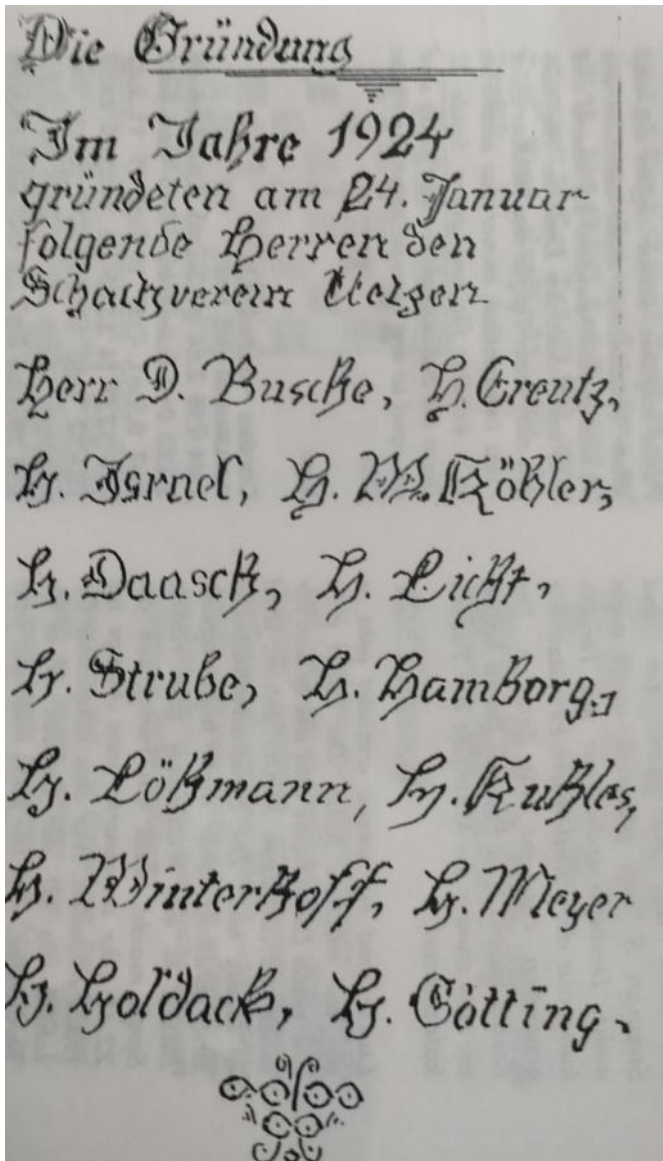 Die Gründung
Im Jahre 1924
gründeten am 24. Januar
folgende Herren den
Schachverein Uelzen
Herr D. Busche, H. Creutz,
H. Israel, H. W. Köhler,
H. Daasch, H. Licht,
H. Strube, H. Hamborg,
H. Löhmann, H. Kuhles,
H. Winterhoff, H. Meyer
H. Holdack, H. Götting.